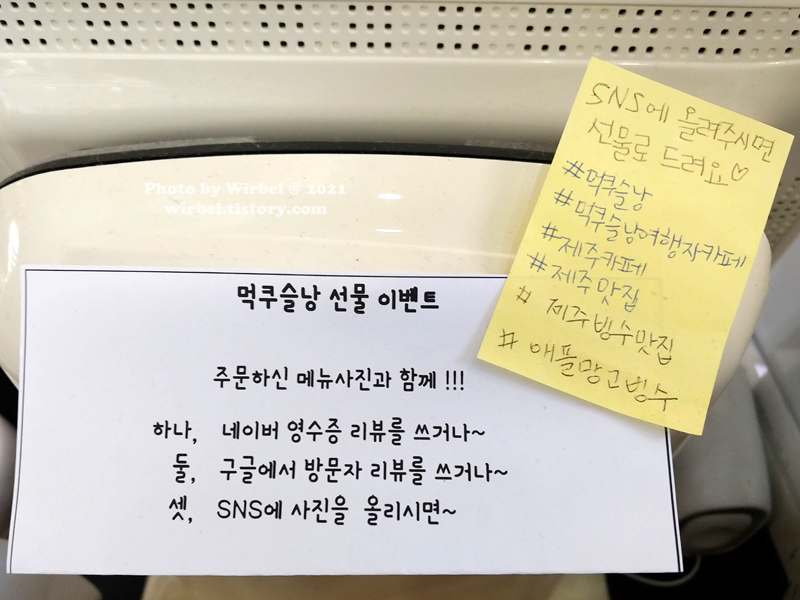 SNS에 올려주시면
선물로 드려요♡
#먹쿠슬낭
#먹쿠슬낭여행자카페
#제주카페
#제주맛집
# 제주빙수맛집
# 애플망고빙수
Photo by Wirbel @ 2021
wirbel.tistory.com
먹쿠슬낭 선물 이벤트
주문하신 메뉴사진과 함께 !!!
하나, 네이버 영수증 리뷰를 쓰거나~
둘, 구글에서 방문자 리뷰를 쓰거나~
셋, SNS에 사진을 올리시면~